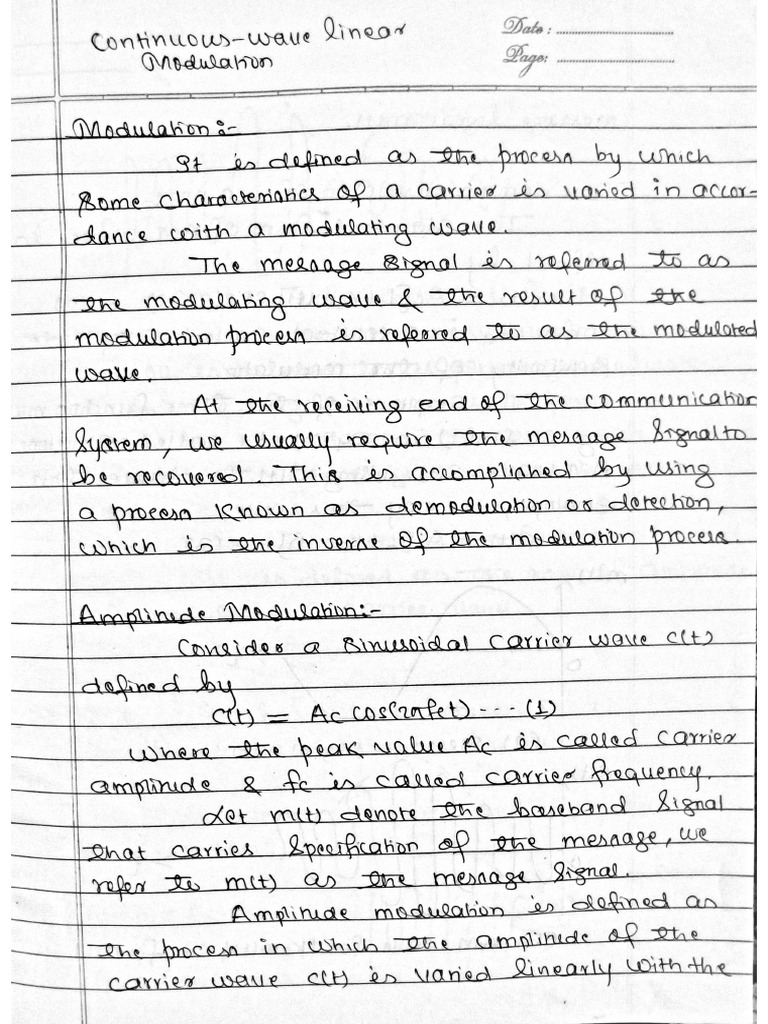 Continuous-wave linear
Modulation
Date : ........................
Page: ........................
Modulation :-
It is defined as the process by which
some characteristics of a carrier is varied in accor-
dance with a modulating wave.
The message signal is referred to as
the modulating wave & the result of the
modulation process is referred to as the modulated
wave.
At the receiving end of the communication
system, we usually require the message signal to
be recovered. This is accomplished by using
a process known as demodulation or detection,
which is the inverse of the modulation process
Amplitude Modulation:-
Consider a sinusoidal carrier wave c(t)
defined by
c(t) = Ac cos(2πfct) --- (1)
where the peak value Ac is called carrier
amplitude & fc is called carrier frequency.
Let m(t) denote the baseband signal
that carries specification of the message, we
refer to m(t) as the message signal.
Amplitude modulation is defined as
the process in which the amplitude of the
carrier wave c(t) is varied linearly with the